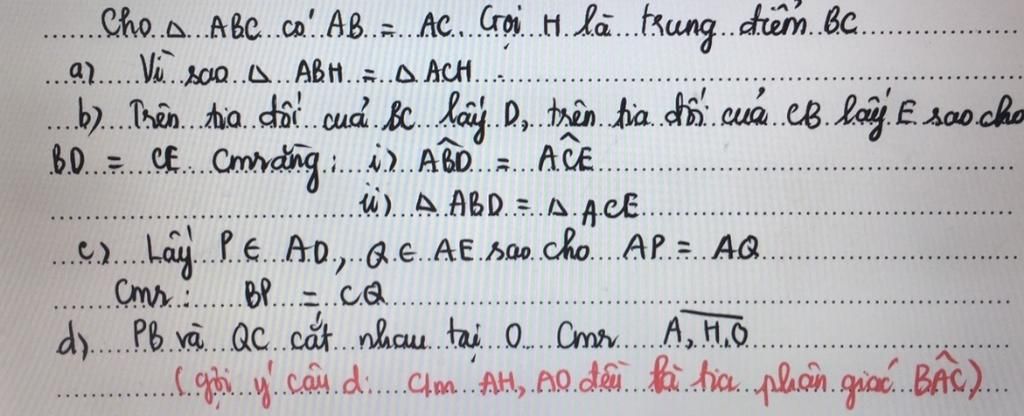 Cho Δ ABC có AB = AC. Gọi H là trung điểm BC
a) Vì sao Δ ABH = Δ ACH.
b) Trên tia đối của BC lấy D, trên tia đối của CB lấy E sao cho
BD = CE. Cmrằng: i) ABD̂ = AĈE
ii) Δ ABD = Δ ACE
c) Lấy P ∈ AD, Q ∈ AE sao cho AP = AQ
Cmr: BP = CQ
d) PB và QC cắt nhau tại O Cmr A, H, O
(gợi ý câu d: Cm AH, AO đều là tia phân giác BÂC)